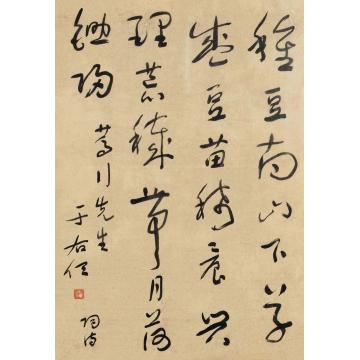 種豆南山下草
盛豆苗稀晨興
理荒穢帶月荷
鋤歸
川先生
于右任
陶詩